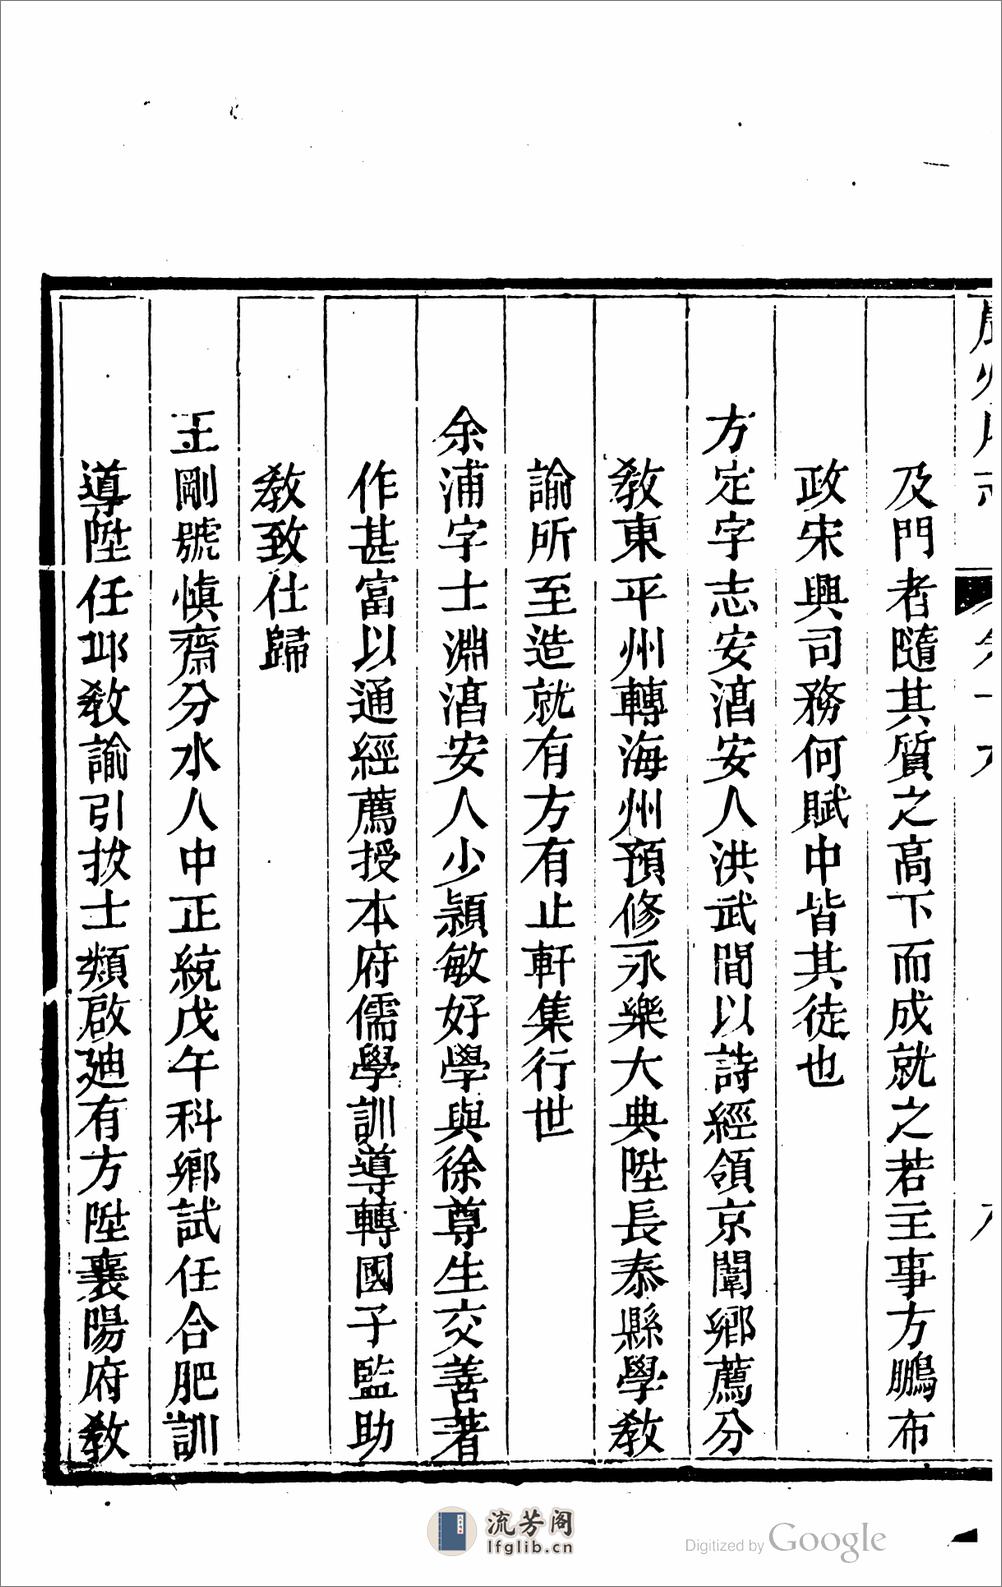 及門者隨其質之高下而成就之若主事方鵬布
政宋興司務何賦中皆其徒也
方定字志安湻安人洪武間以詩經領京闈鄉薦分
敎東平州轉海州預修永樂大典陞長泰縣學敎
諭所至造就有方有止軒集行世
余浦字士淵湻安人少穎敏好學與徐尊生交善著
作甚富以通經薦授本府儒學訓導轉國子監助
敎致仕歸
王剛號慎齋分水人中正統戊午科鄉試任合肥訓
導陞任邛敎諭引拔士類啟廸有方陞襄陽府敎
流芳阁
lfglib.cn
Digitized by Google